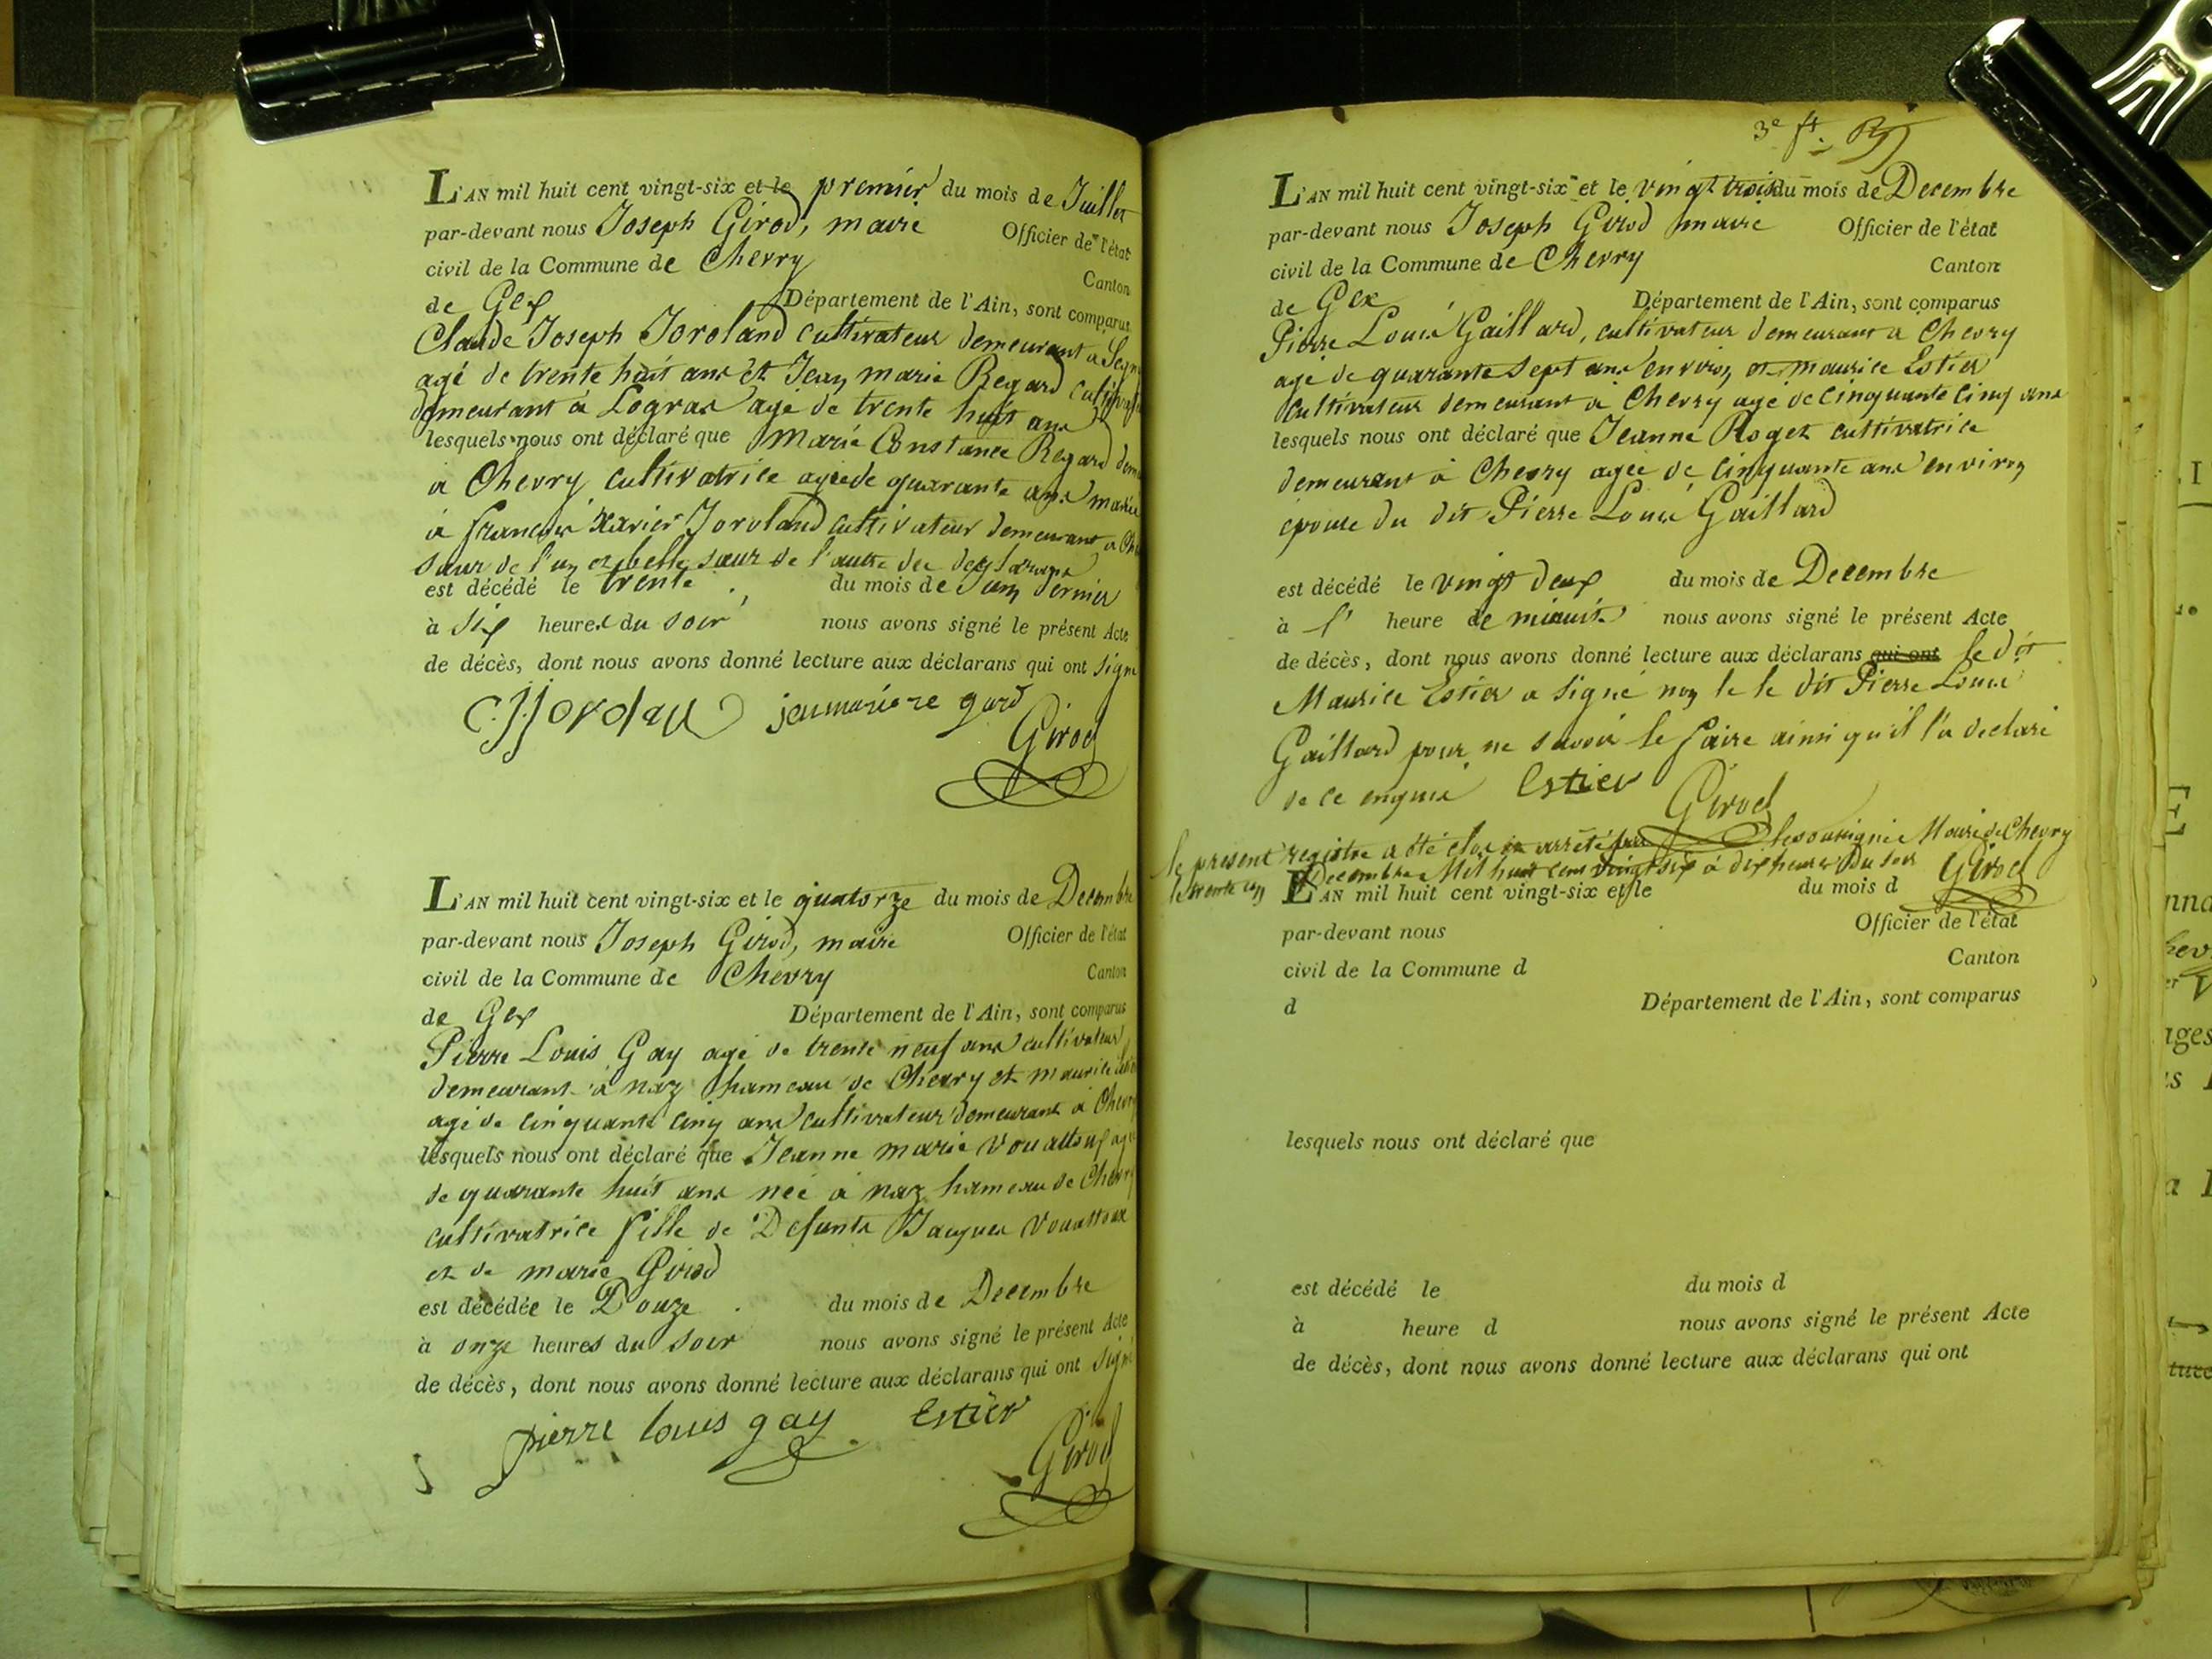 L'AN mil huit cent vingt-six et le premier du mois de Juillet
par-devant nous Joseph Girod, maire Officier de l'état
civil de la Commune de Chevry
Canton
de Gex Département de l'Ain, sont comparus
Claude Joseph Joroland cultivateur demeurant a
agé de trente huit ans et Jean marie Regard
demeurant à Logras agé de trente huit ans
lesquels nous ont déclaré que Marie Constance Regard
a Chevry cultivatrice agée de quarante ans
à françois Xavier Joroland cultivateur demeurant a
sœur de l'un et belle sœur de l'autre des declarans
est décédé le trente du mois de Juin dernier
à six heures du soir nous avons signé le présent Acte
de décès, dont nous avons donné lecture aux déclarans qui ont signé
jeumariere gard
Girod
L'AN mil huit cent vingt-six et le quatorze du mois de Decembre
par-devant nous Joseph Girod, maire Officier de l'état
civil de la Commune de Chevry Canton
de Gex Département de l'Ain, sont comparus
Pierre Louis Gay agé de trente neuf ans cultivateur
demeurant à naz hameau de Chevry et maurice
agé de cinquante cinq ans cultivateur demeurant à Chevry
lesquels nous ont déclaré que Jeanne marie Vouattoux
de quarante huit ans née à naz hameau de Chevry
cultivatrice fille de Defunts Jacques Vouattoux
et de marie Girod
est décédée le Douze du mois de Decembre
à onze heures du soir nous avons signé le présent Acte
de décès, dont nous avons donné lecture aux déclarans qui ont signé
pierre louis gay Estier
Girod
3e ft.
L'AN mil huit cent vingt-six et le vingt trois du mois de Decembre
par-devant nous Joseph Girod maire Officier de l'état
civil de la Commune de Chevry Canton
de Gex Département de l'Ain, sont comparus
Pierre Louis Gaillard, cultivateur demeurant à Chevry
agé de quarante sept ans environ et maurice Estier
cultivateur demeurant à Chevry agé de cinquante cinq ans
lesquels nous ont déclaré que Jeanne Roget cultivatrice
demeurant à Chevry agée de cinquante ans environ
epouse du dit Pierre Louis Gaillard
est décédé le vingt deux du mois de Decembre
à l' heure de minuit nous avons signé le présent Acte
de décès, dont nous avons donné lecture aux déclarans qui ont le dit
Maurice Estier a signé non le le dit Pierre Louis
Gaillard pour ne savoir le faire ainsi qu'il l'a declaré
de ce enquis Estier Girod
le present registre a été clos et arrêté par le soussigné Maire de Chevry
le trente un Decembre Mil huit cent vingt six à dix heures Du soir Girod
L'AN mil huit cent vingt-six et le du mois d
par-devant nous Officier de l'état
civil de la Commune d Canton
d Département de l'Ain, sont comparus
lesquels nous ont déclaré que
est décédé le du mois d
à heure d nous avons signé le présent Acte
de décès, dont nous avons donné lecture aux déclarans qui ont